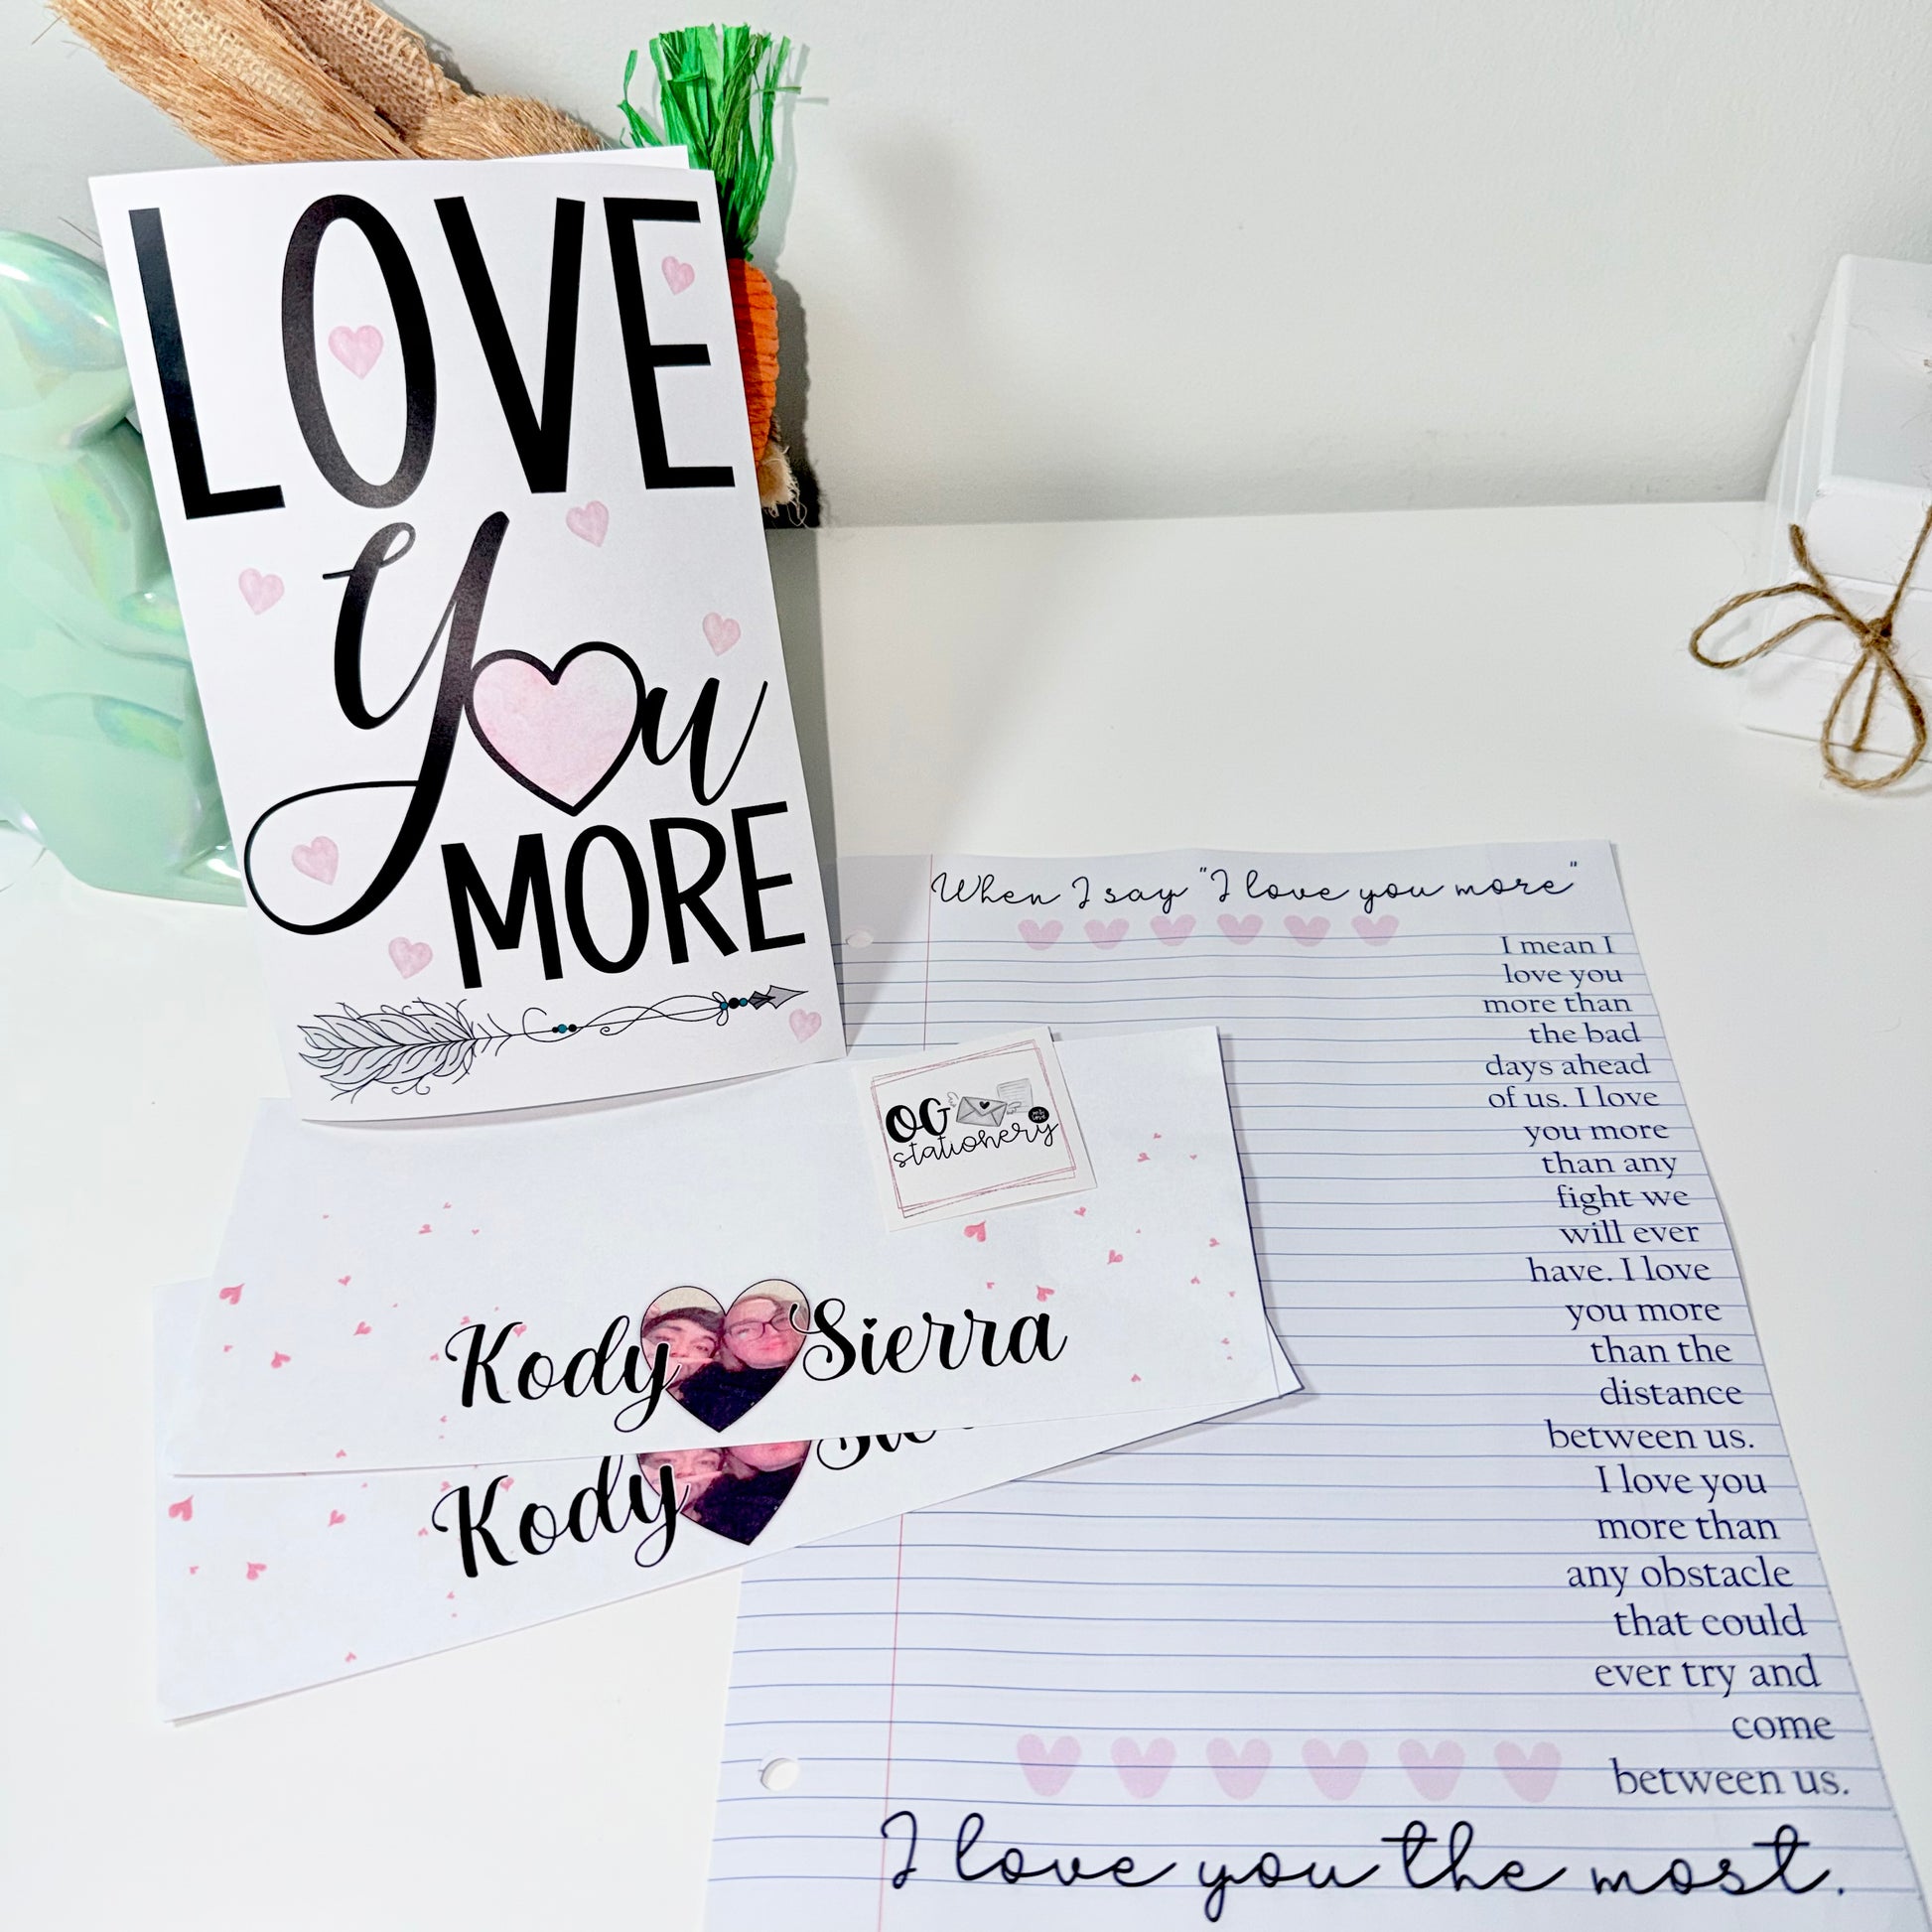 LOVE
you
MORE
When I say "I love you more"
I mean I
love you
more than
the bad
days ahead
of us. I love
you more
than any
fight we
will ever
have. I love
you more
than the
distance
between us.
I love you
more than
any obstacle
that could
ever try and
come
between us.
I love you the most.
OG
stationery
Kody Sierra
Kody